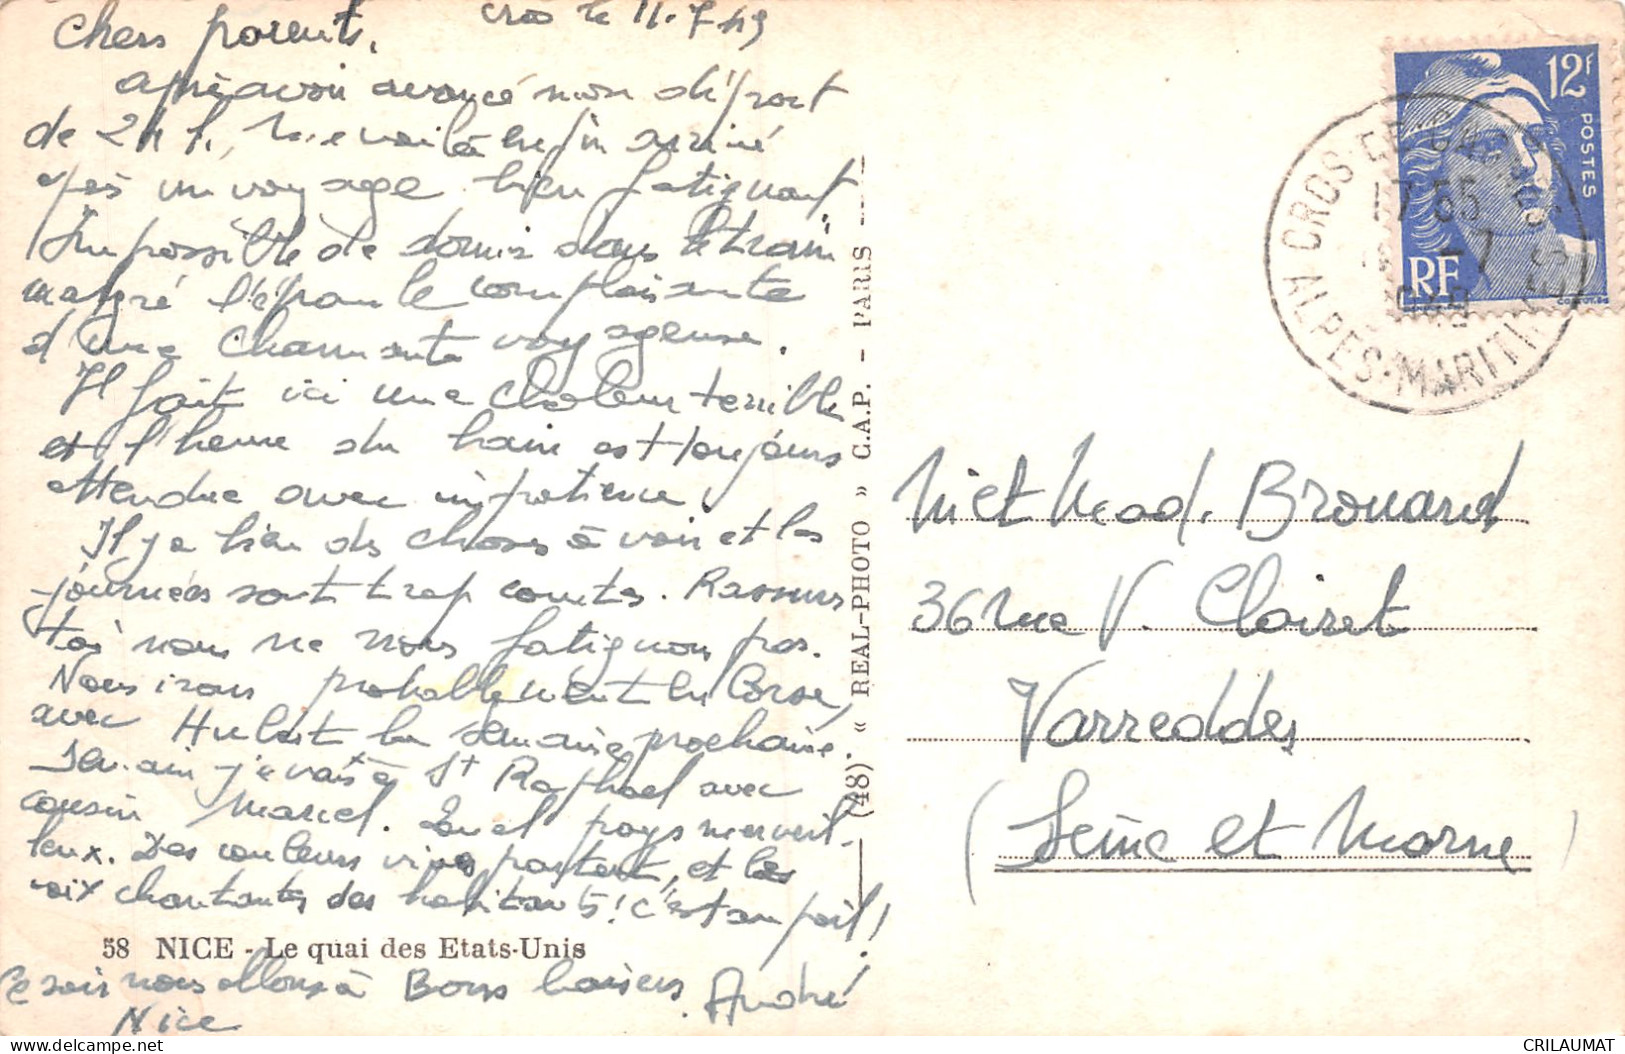 Cros le 11.7.49
Chers parents,
après avoir avancé mon départ
de 24 h, me voilà enfin arrivé
après un voyage bien fatiguant
Impossible de dormir dans le train
malgré l'épaule complaisante
d'une charmante voyageuse.
Il fait ici une chaleur terrible
et l'heure du bain est toujours
attendue avec impatience
Il y a bien des choses à voir et les
journées sont trop courtes. Rassures
toi nous ne nous fatiguons pas.
Nous irons probablement en Corse,
avec Hubert la semaine prochaine.
Demain je vais à St Raphael avec
cousin Marcel. Quel pays merveil-
leux. Des couleurs vives partout, et les
voix chantantes des habitants! c'est au poil!
58 NICE - Le quai des Etats-Unis
Ce soir nous allons à
Nice
Bons baisers.
André
(48) « REAL-PHOTO » C.A.P. - PARIS
12F
POSTES
RF
CROS DE CAGNES
17 55
-7
ALPES-MARITIMES
M et Mad. Brouard
36 rue V. Clairet
Varreddes
(Seine et Marne)
CRILAUMAT